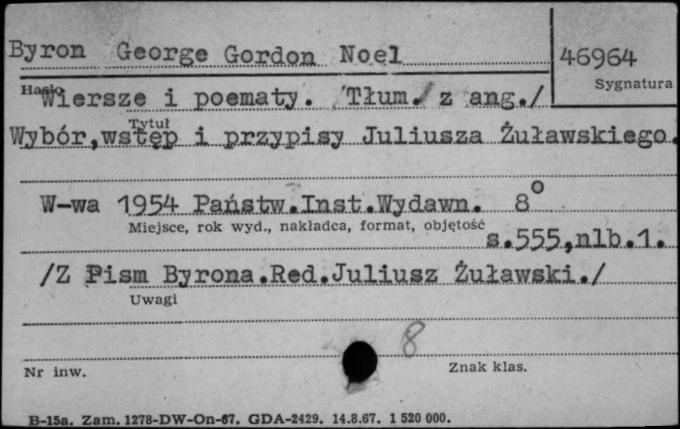 Byron George Gordon Noel
46964
Sygnatura
Hasło
Wiersze i poematy. /Tłum. z ang./
Tytuł
Wybór,wstęp i przypisy Juliusza Żuławskiego.
W-wa 1954 Państw.Inst.Wydawn. 8°
Miejsce, rok wyd., nakładca, format, objętość
s.555,nlb.1.
/Z Pism Byrona.Red.Juliusz Żuławski./
Uwagi
8
Nr inw.
Znak klas.
B-15a. Zam. 1278-DW-On-67. GDA-2429. 14.8.67. 1 520 000.